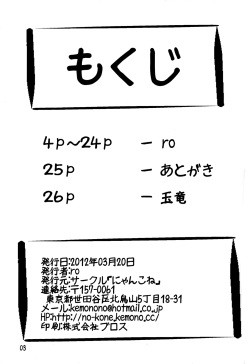 もくじ
4p～24p － ro
25p － あとがき
26p － 玉竜
発行日:2012年03月20日
発行者:ro
発行元:サークル「にゃんこね」
連絡先:〒157-0061
東京都世田谷区北烏山5丁目18-31
メール:kemonono@hotmail.co.jp
HP:http://no-kone.kemono.cc/
印刷:株式会社プロス
03